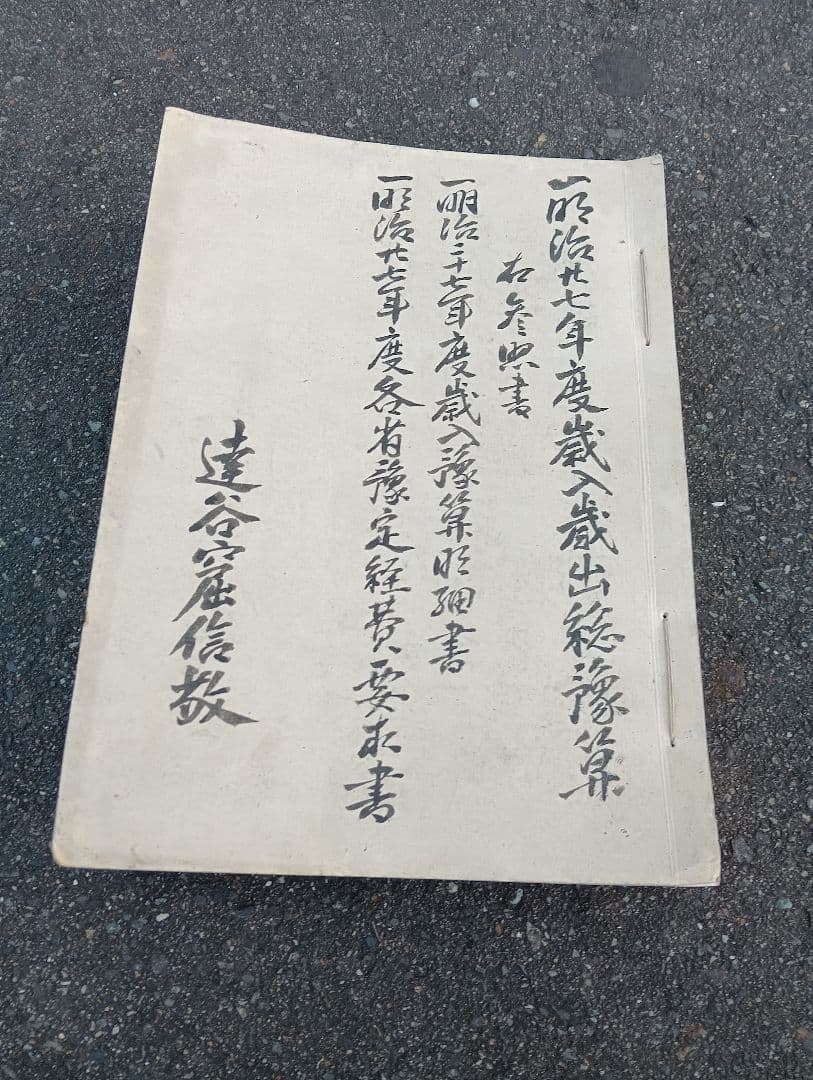 一明治廿七年度歳入歳出総豫算
右参照書
一明治二十七年度歳入豫算明細書
一明治廿七年度各省豫定経費要求書
達谷窟信敬